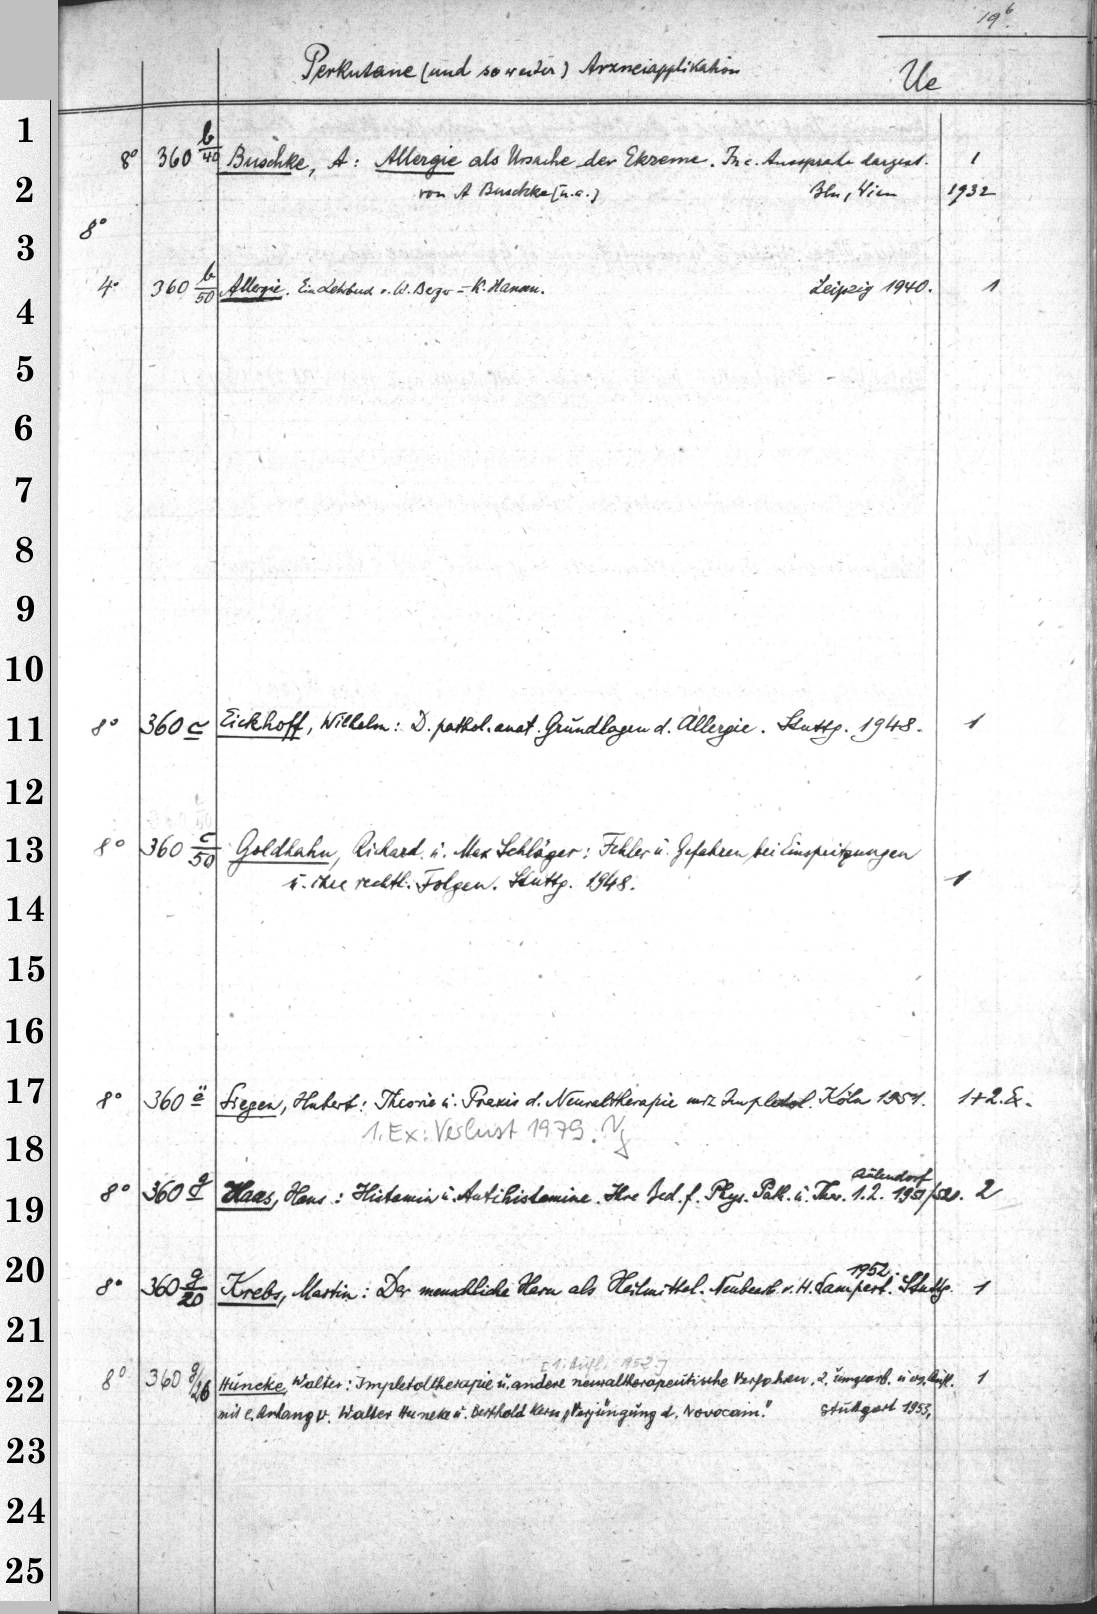 19⁶.
Perkutane (und so weiter) Arzneiapplikation
Ue
1
8° 360 b/40 Buschke, A: Allergie als Ursache der Ekzeme. In e. Aussprache dargest. 1
2
von A Buschke [u.a.] Bln, Wien 1932
8°
3
4° 360 b/50 Allergie. Ein Lehrbuch v. W. Berger - K. Hansen. Leipzig 1940. 1
4
5
6
7
8
9
10
11
8° 360 c Eickhoff, Wilhelm: D. pathol. anat. Grundlagen d. Allergie. Stuttg. 1948. 1
12
13
8° 360 c/50 Goldhahn, Richard u. Max Schläger: Fehler u. Gefahren bei Einspritzungen
u. ihre rechtl. Folgen. Stuttg. 1948. 1
14
15
16
17
8° 360 ë Siegen, Hubert: Theorie u. Praxis d. Neuraltherapie mit Impletol. Köln 1951. 1+2. Ex.
1. Ex: Verlust 1979.
18
Aulendorf
19
8° 360 g Haas, Hans: Histamin u. Antihistamine. Ihre Bed. f. Phys. Path. u. Ther. 1.2. 1951/52. 2
20
1952.
8° 360 g/20 Krebs, Martin: Der menschliche Harn als Heilmittel. Neubearb. v. H. Lampert. Stuttg. 1
21
[1. Aufl. 1952.]
22
8° 360 g/26 Huneke, Walter: Impletoltherapie u. andere neuraltherapeutische Verfahren. 2. umgearb. u. erg. Aufl. 1
mit e. Anhang v. Walter Huneke u. Berthold Kern „Verjüngung d. Novocain." Stuttgart 1953.
23
24
25